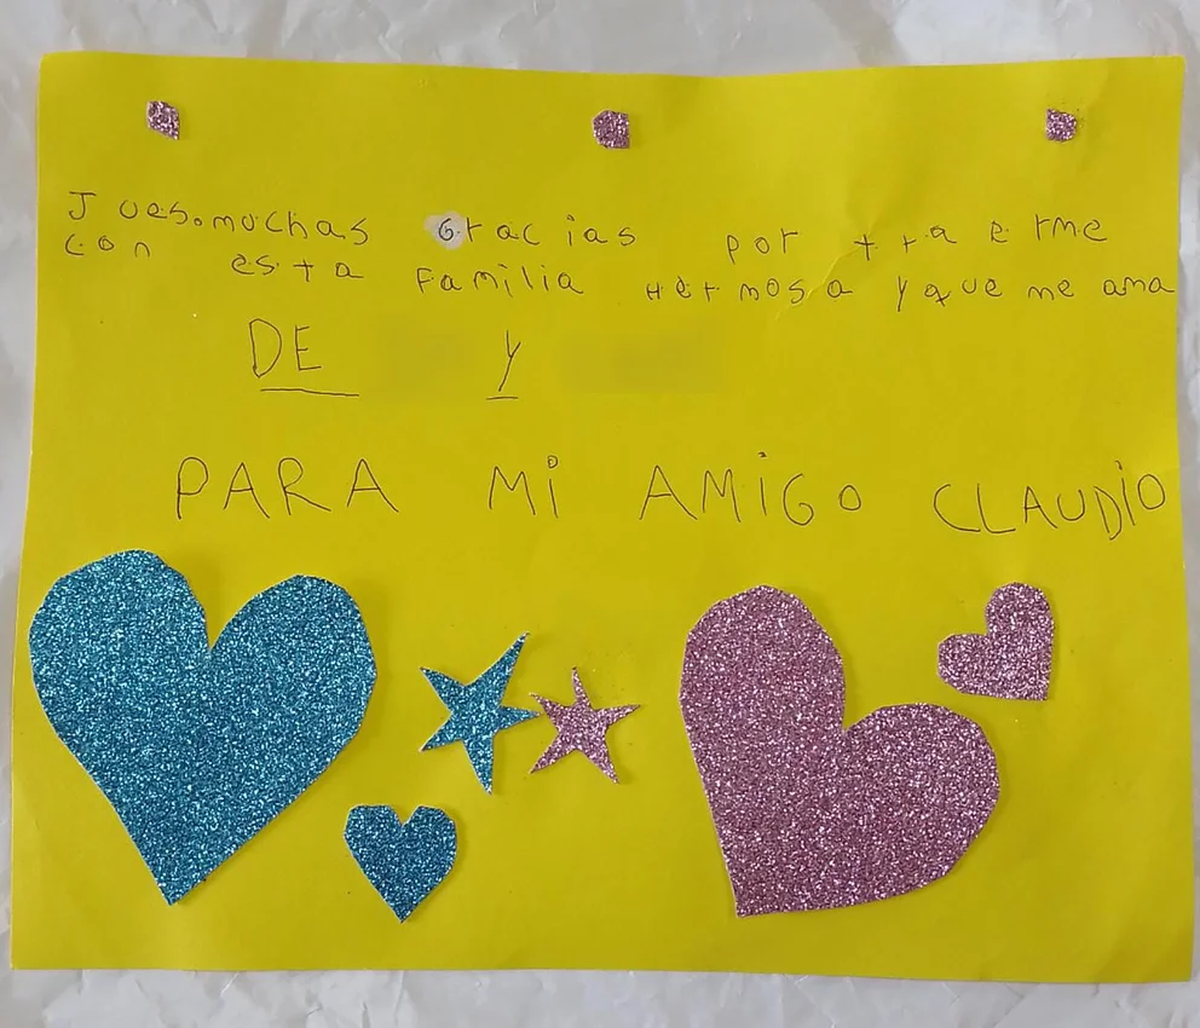 Jues.muchas Gracias por traerme
con esta Familia Hermosa y que me ama
DE Y
PARA Mi AMiGO CLAUDiO